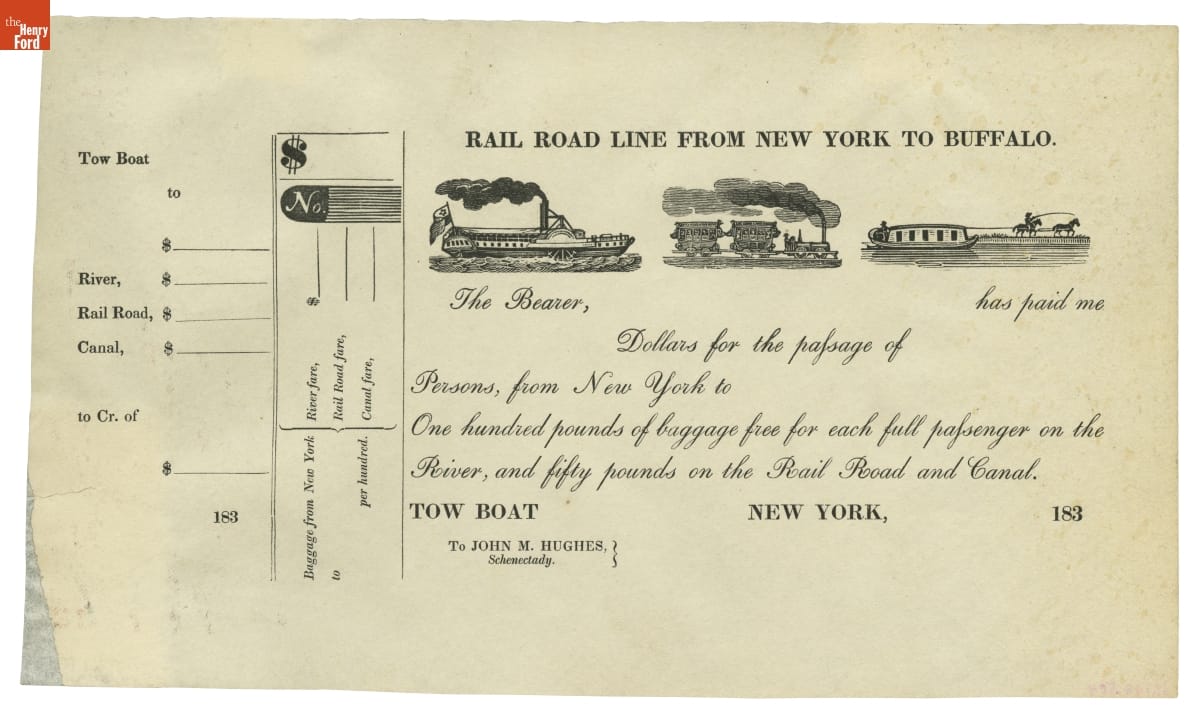 the
Henry
Ford
Tow Boat
to
$
River, $
Rail Road, $
Canal, $
to Cr. of
$
183
$
No.
$
River fare,
Rail Road fare,
Canal fare,
Baggage from New York
to
per hundred.
RAIL ROAD LINE FROM NEW YORK TO BUFFALO.
The Bearer, has paid me
Dollars for the paſsage of
Persons, from New York to
One hundred pounds of baggage free for each full paſsenger on the
River, and fifty pounds on the Rail Road and Canal.
TOW BOAT NEW YORK, 183
To JOHN M. HUGHES, }
Schenectady.